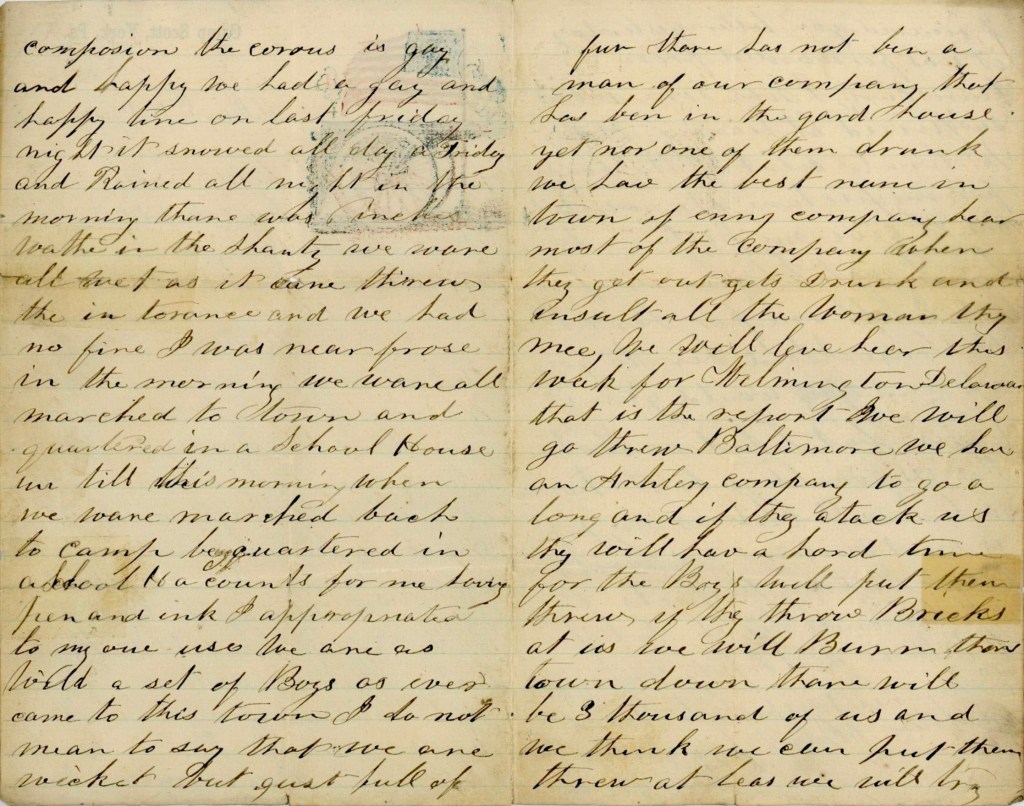 composion the corous is gay
and happy we had a gay and
happy time on last friday
night it snowed all day a Friday
and Rained all night in the
morning thare was inches
wathe in the Shanty we ware
all wet as it came threw
the in torance and we had
no fire I was near frose
in the morning we ware all
marched to town and
quartered in a School House
un till this morning when
we ware marched back
to camp be quartered in
a School H acounts for me having
pen and ink I appropriated
to my one use We are as
Wild a set of Boys as ever
came to this town I do not
mean to say that we are
wicket but gust full of
fun thare has not ben a
man of our company that
has ben in the gard house
yet nor one of them drunk
we hav the best name in
town of enny company hear
most of the company when
they get out gets drunk and
insult all the woman thy
mee, We will leve hear this
weak for Wilmington Delawar
that is the report We will
go threw Baltimore we have
an Artilery company to go a
long and if they atack us
they will hav a hard time
for the Boys will put them
threw if they throw Bricks
at us we will Burn thare
town down thare will
be 3 thousand of us and
we think we can put them
threw at leas we will try